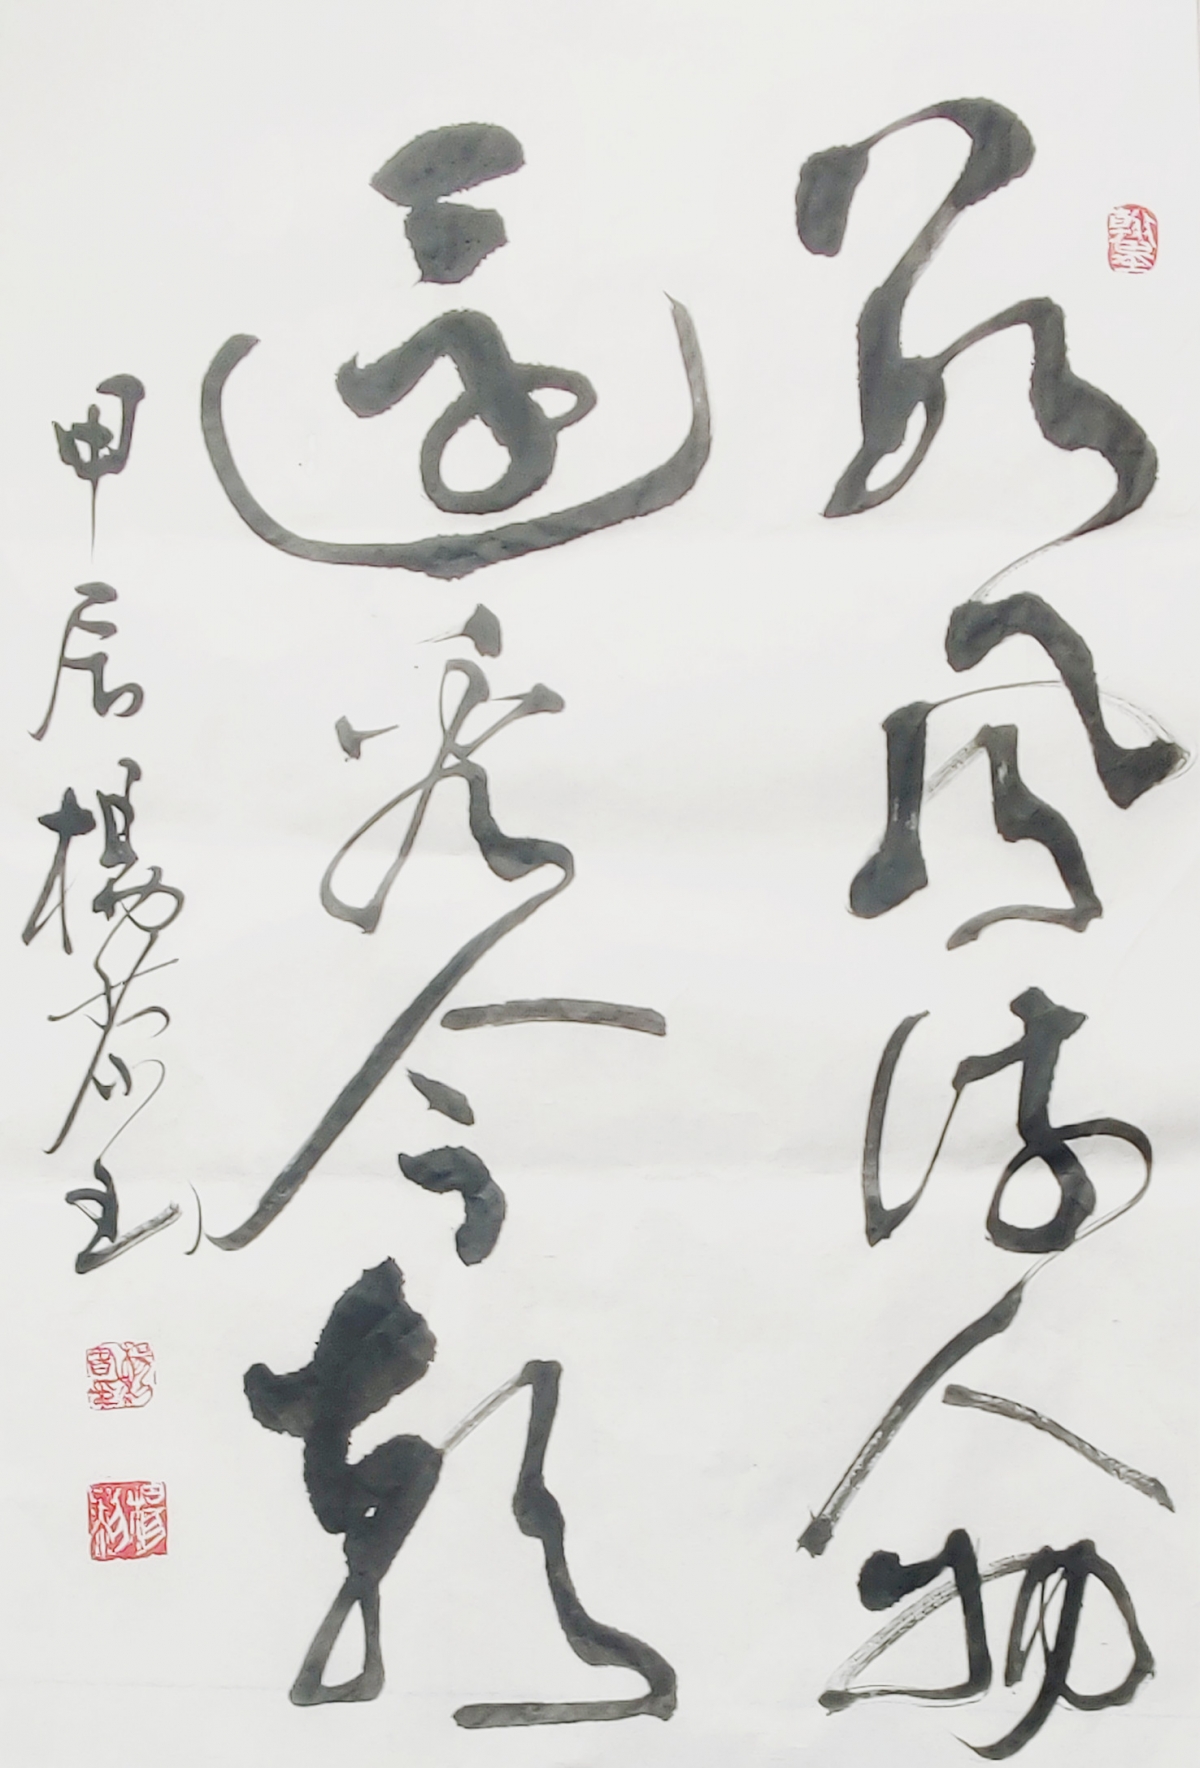 數風流人物
還看今朝
甲辰楊